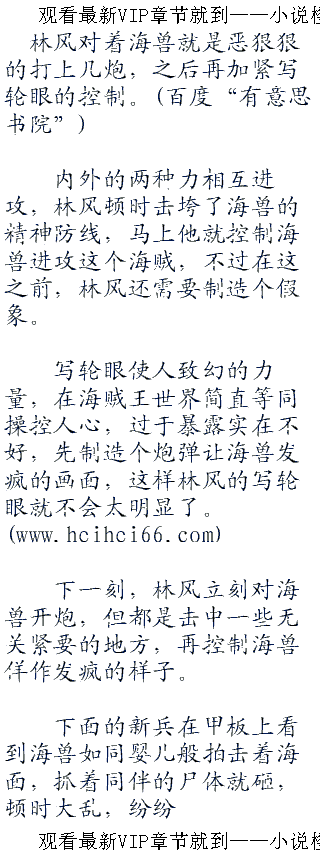 观看最新VIP章节就到——小说
林风对着海兽就是恶狠狠
的打上几炮，之后再加紧写
轮眼的控制。(百度“有意思
书院”)
内外的两种力相互进
攻，林风顿时击垮了海兽的
精神防线，马上他就控制海
兽进攻这个海贼，不过在这
之前，林风还需要制造个假
象。
写轮眼使人致幻的力
量，在海贼王世界简直等同
操控人心，过于暴露实在不
好，先制造个炮弹让海兽发
疯的画面，这样林风的写轮
眼就不会太明显了。
(www.hcihci66.com)
下一刻，林风立刻对海
兽开炮，但都是击中一些无
关紧要的地方，再控制海兽
佯作发疯的样子。
下面的新兵在甲板上看
到海兽如同婴儿般拍击着海
面，抓着同伴的尸体就砸，
顿时大乱，纷纷
观看最新VIP章节就到——小说